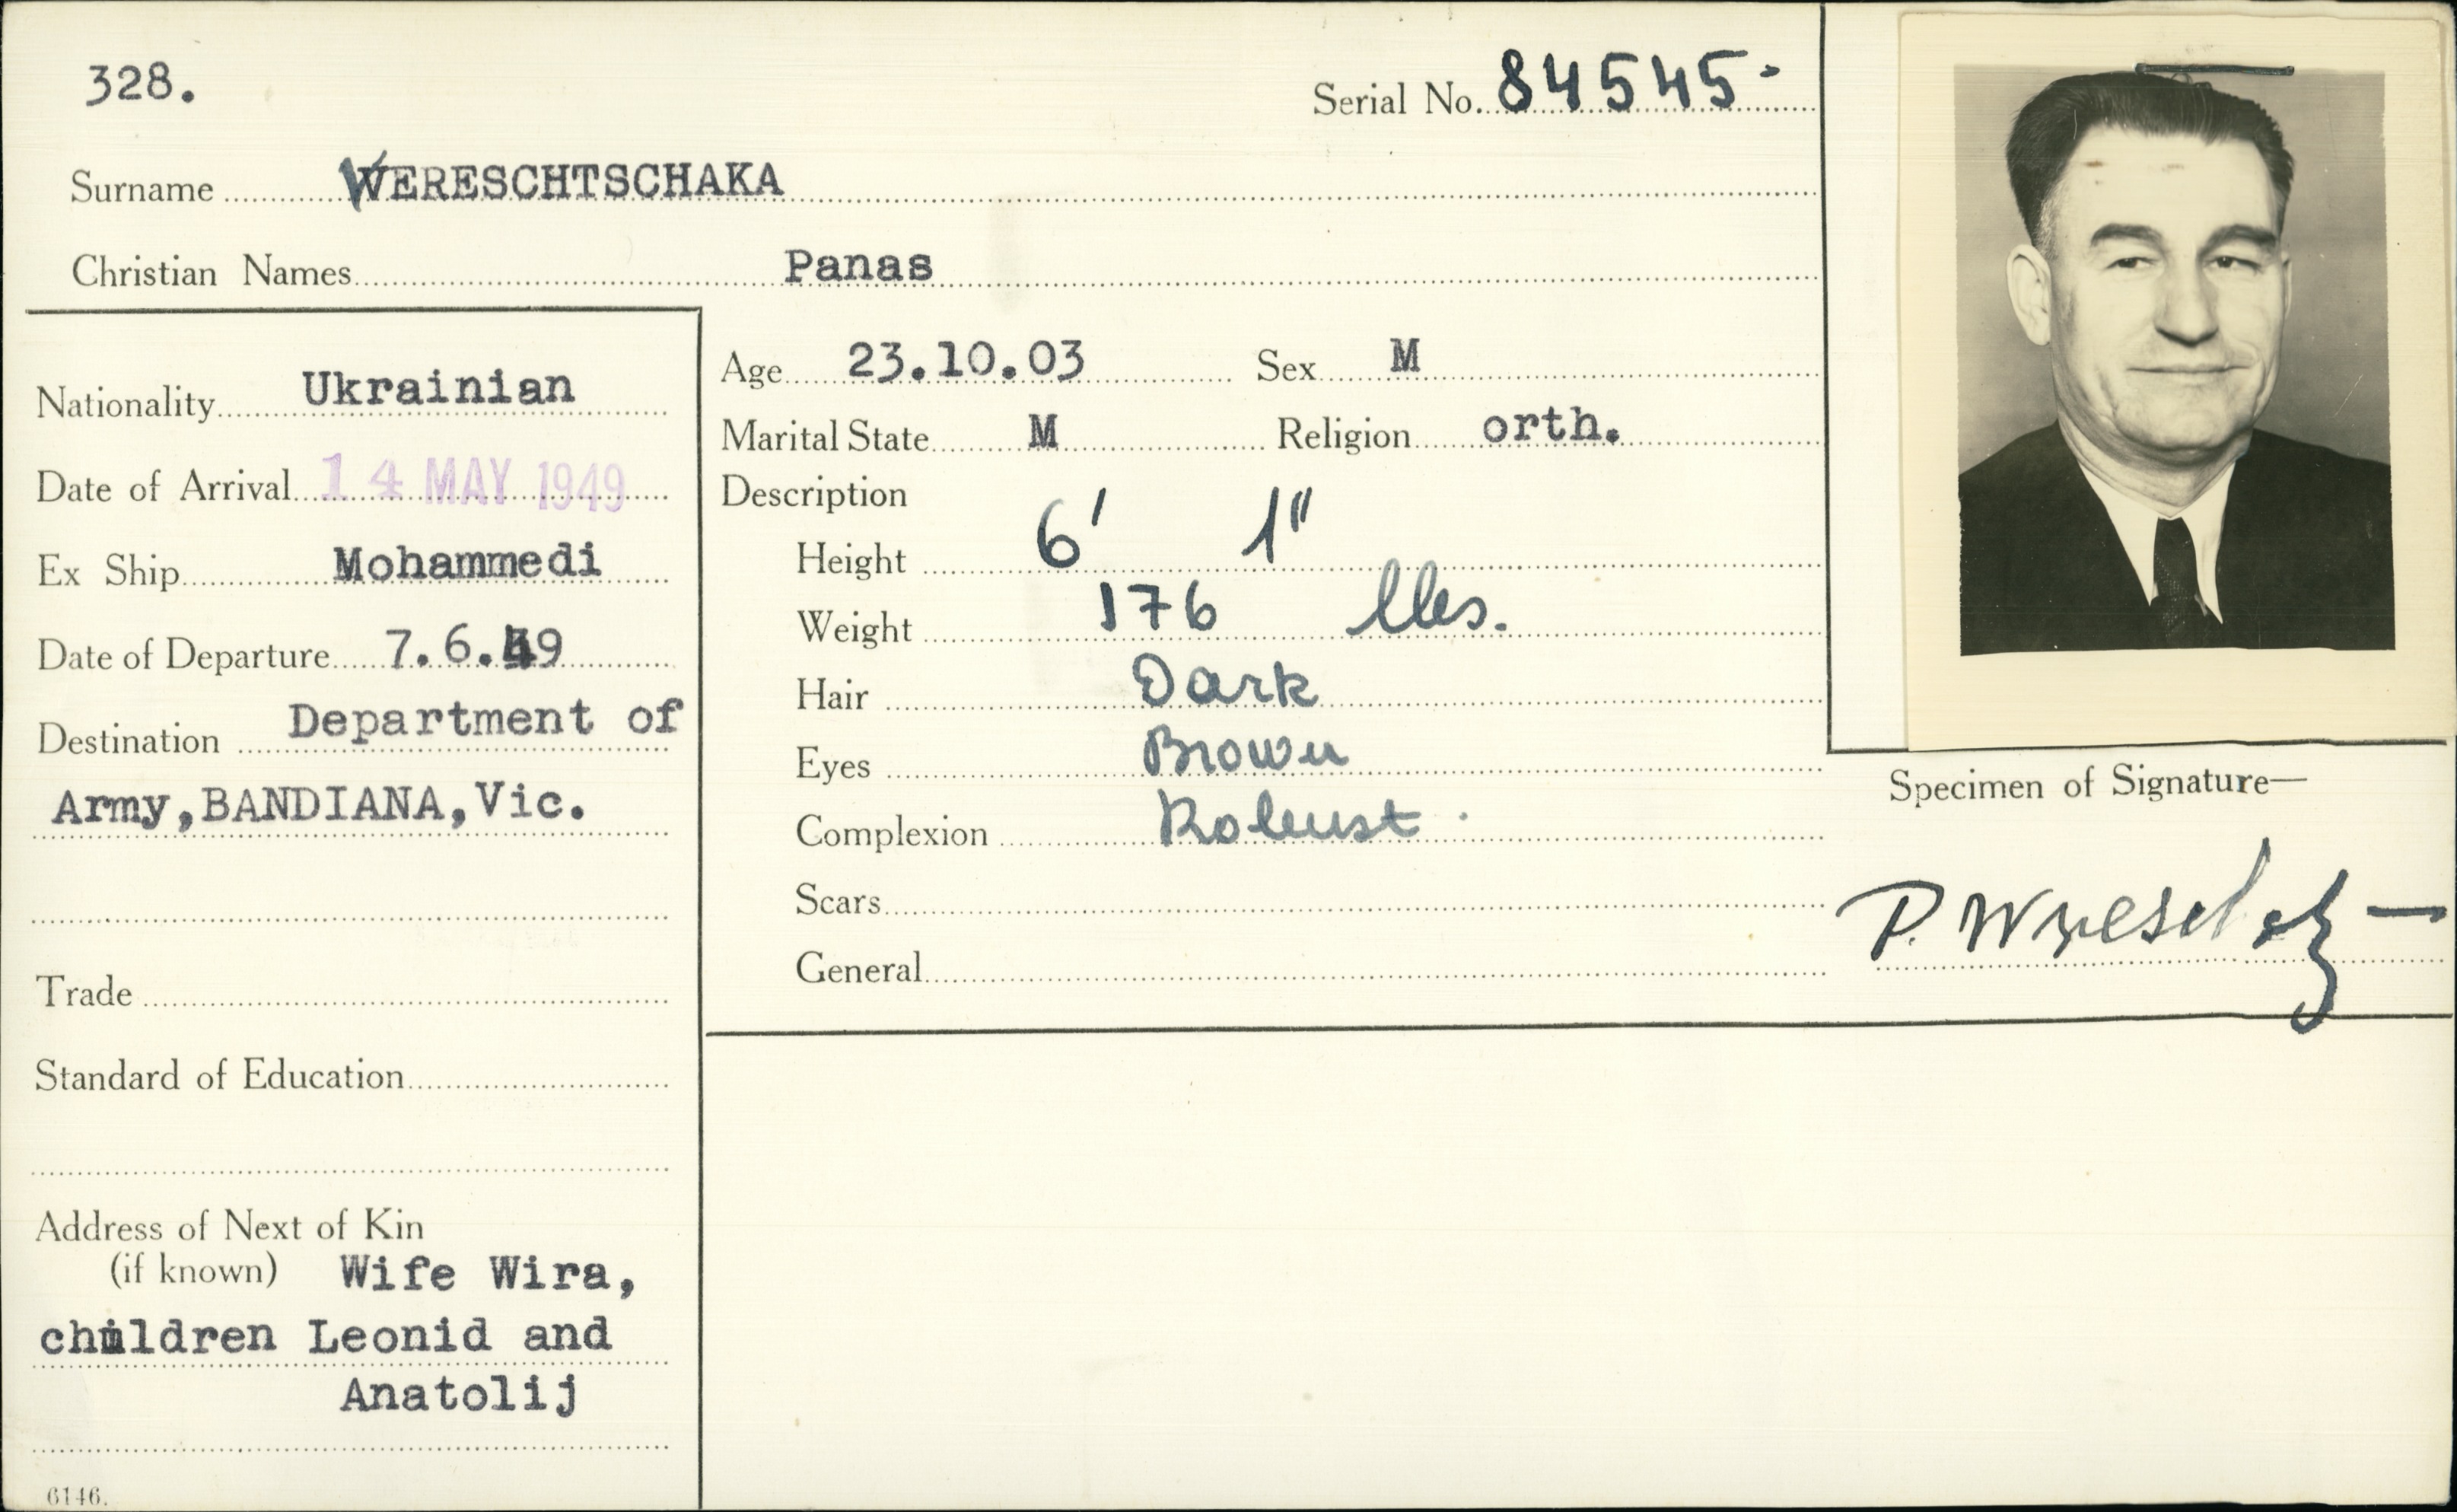 328.
Serial No. 84545-
Surname WERESCHTSCHAKA
Christian Names Panas
Nationality Ukrainian
Date of Arrival 14 MAY 1949
Ex Ship Mohammedi
Date of Departure 7.6.49
Destination Department of
Army,BANDIANA,Vic.
Trade
Standard of Education
Address of Next of Kin
(if known) Wife Wira,
children Leonid and
Anatolij
6146.
Age 23.10.03 Sex M
Marital State M Religion orth.
Description
Height 6' 1"
Weight 176 lbs.
Hair Dark
Eyes Brown
Complexion Robust.
Scars
General
Specimen of Signature—
P.